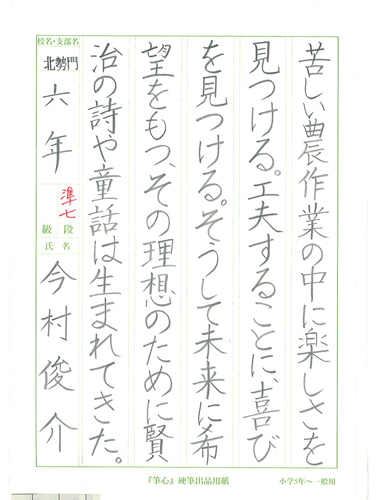 苦しい農作業の中に楽しさを
見つける。工夫することに、喜び
を見つける。そうして未来に希
望をもつ、その理想のために賢
治の詩や童話は生まれてきた。
校名・支部名
北勢門
六年
準七
級 段
氏 名
今村俊介
『筆心』硬筆出品用紙
小学5年〜一般用